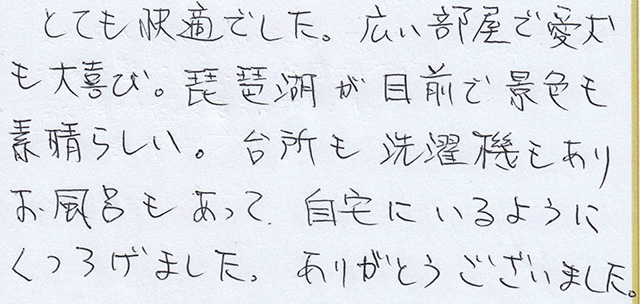 とても快適でした。広い部屋で愛犬
も大喜び。琵琶湖が目前で景色も
素晴らしい。台所も洗濯機もあり
お風呂もあって、自宅にいるように
くつろげました。ありがとうございました。